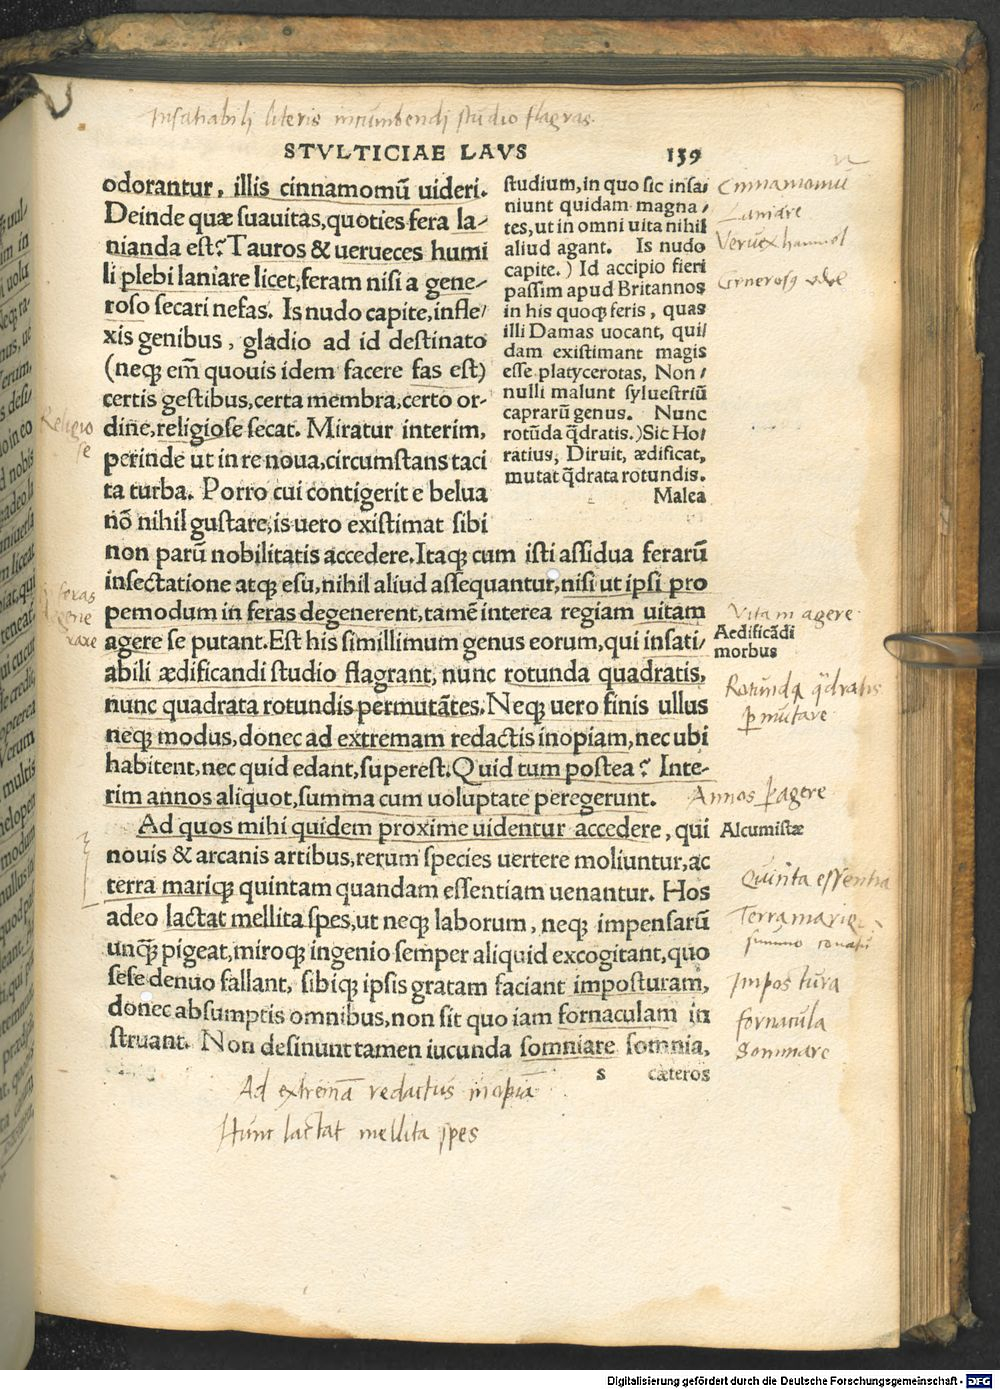 Insatiabili literis incumbendi studio flagras.
STVLTICIAE LAVS 139
odorantur, illis cinnamomū uideri.
Deinde quæ suauitas, quoties fera la-
nianda est? Tauros & uerueces humi
li plebi laniare licet, feram nisi a gene-
roso secari nefas. Is nudo capite, infle/
xis genibus, gladio ad id destinato
(neq; em̄ quouis idem facere fas est)
certis gestibus, certa membra, certo or-
dine, religiose secat. Miratur interim,
perinde ut in re noua, circumstans taci
ta turba. Porro cui contigerit e belua
nō nihil gustare, is uero existimat sibi
non parū nobilitatis accedere. Itaq; cum isti assidua ferarū
insectatione atq; esu, nihil aliud assequantur, nisi ut ipsi pro
pemodum in feras degenerent, tamē interea regiam uitam
agere se putant. Est his simillimum genus eorum, qui insati-
abili ædificandi studio flagrant, nunc rotunda quadratis,
nunc quadrata rotundis permutātes. Neq; uero finis ullus
neq; modus, donec ad extremam redactis inopiam, nec ubi
habitent, nec quid edant, superest. Quid tum postea? Inte-
rim annos aliquot, summa cum uoluptate peregerunt.
Ad quos mihi quidem proxime uidentur accedere, qui
nouis & arcanis artibus, rerum species uertere moliuntur, ac
terra mariq; quintam quandam essentiam uenantur. Hos
adeo lactat mellita spes, ut neq; laborum, neq; impensarū
unq̄; pigeat, miroq; ingenio semper aliquid excogitant, quo
sese denuo fallant, sibiq; ipsis gratam faciant imposturam,
donec absumptis omnibus, non sit quo iam fornaculam in
struant. Non desinunt tamen iucunda somniare somnia,
s cæteros
studium, in quo sic insa/
niunt quidam magna/
tes, ut in omni uita nihil
aliud agant. Is nudo
capite.) Id accipio fieri
passim apud Britannos
in his quoq; feris, quas
illi Damas uocant, qui/
dam existimant magis
esse platycerotas, Non/
nulli malunt syluestriū
caprarū genus. Nunc
rotūda q̄dratis.) Sic Ho/
ratius, Diruit, ædificat,
mutat q̄drata rotundis.
Malea
Cinnamomū
Laniare
Veruex hammol
Generosus edel
Religio
se
feras
Vitam agere
Aedificādi
morbus
Rotunda q̄dratis
p̱mutare
Annos p̱agere
Alcumistæ
Quinta essentia
Terra mariq;
Impostura
fornacula
Somniare
Ad extremā redactus inopiā
Hunc lactat mellita spes
Digitalisierung gefördert durch die Deutsche Forschungsgemeinschaft - DFG